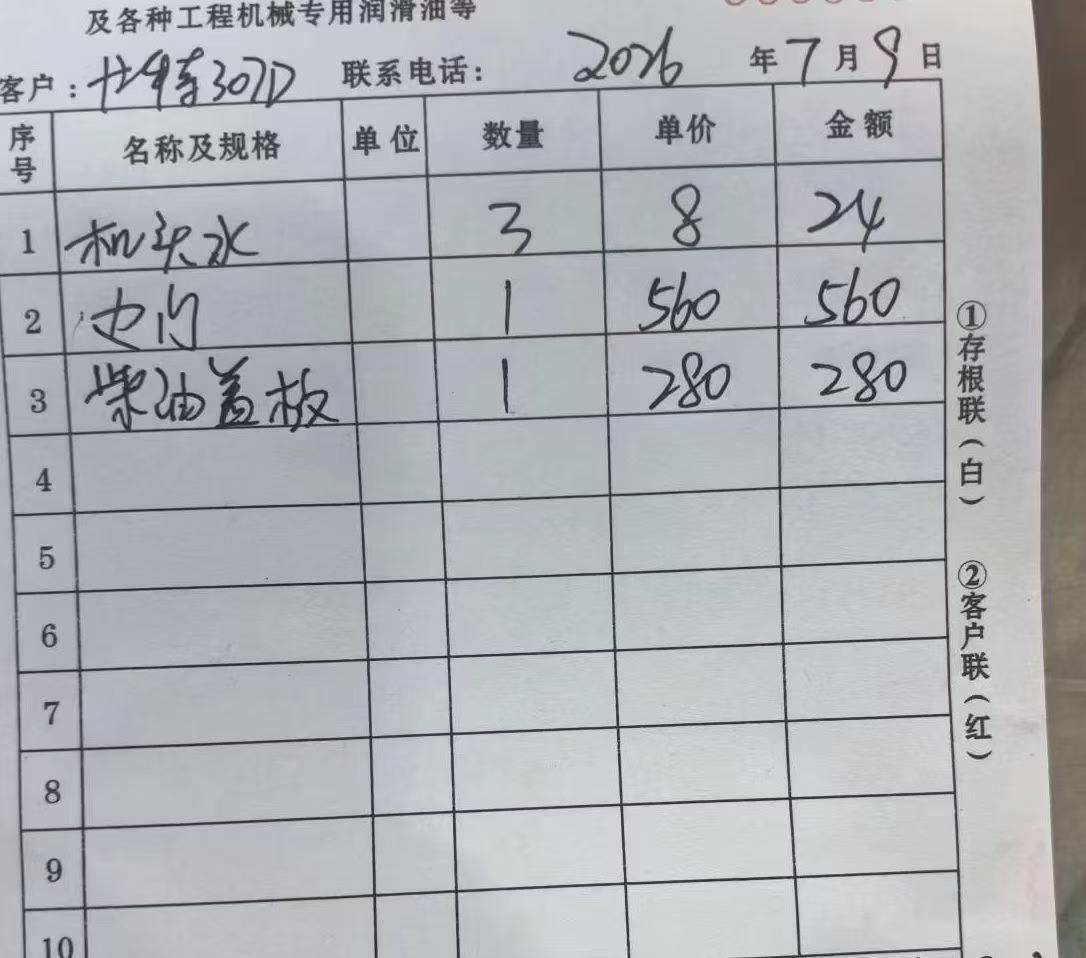 及各种工程机械专用润滑油等
客户：卡特307D 联系电话： 2026 年 7 月 9 日
序号 名称及规格 单位 数量 单价 金额
1 机头水 3 8 24
2 边门 1 560 560
3 柴油盖板 1 280 280
4
5
6
7
8
9
10
①存根联（白） ②客户联（红）